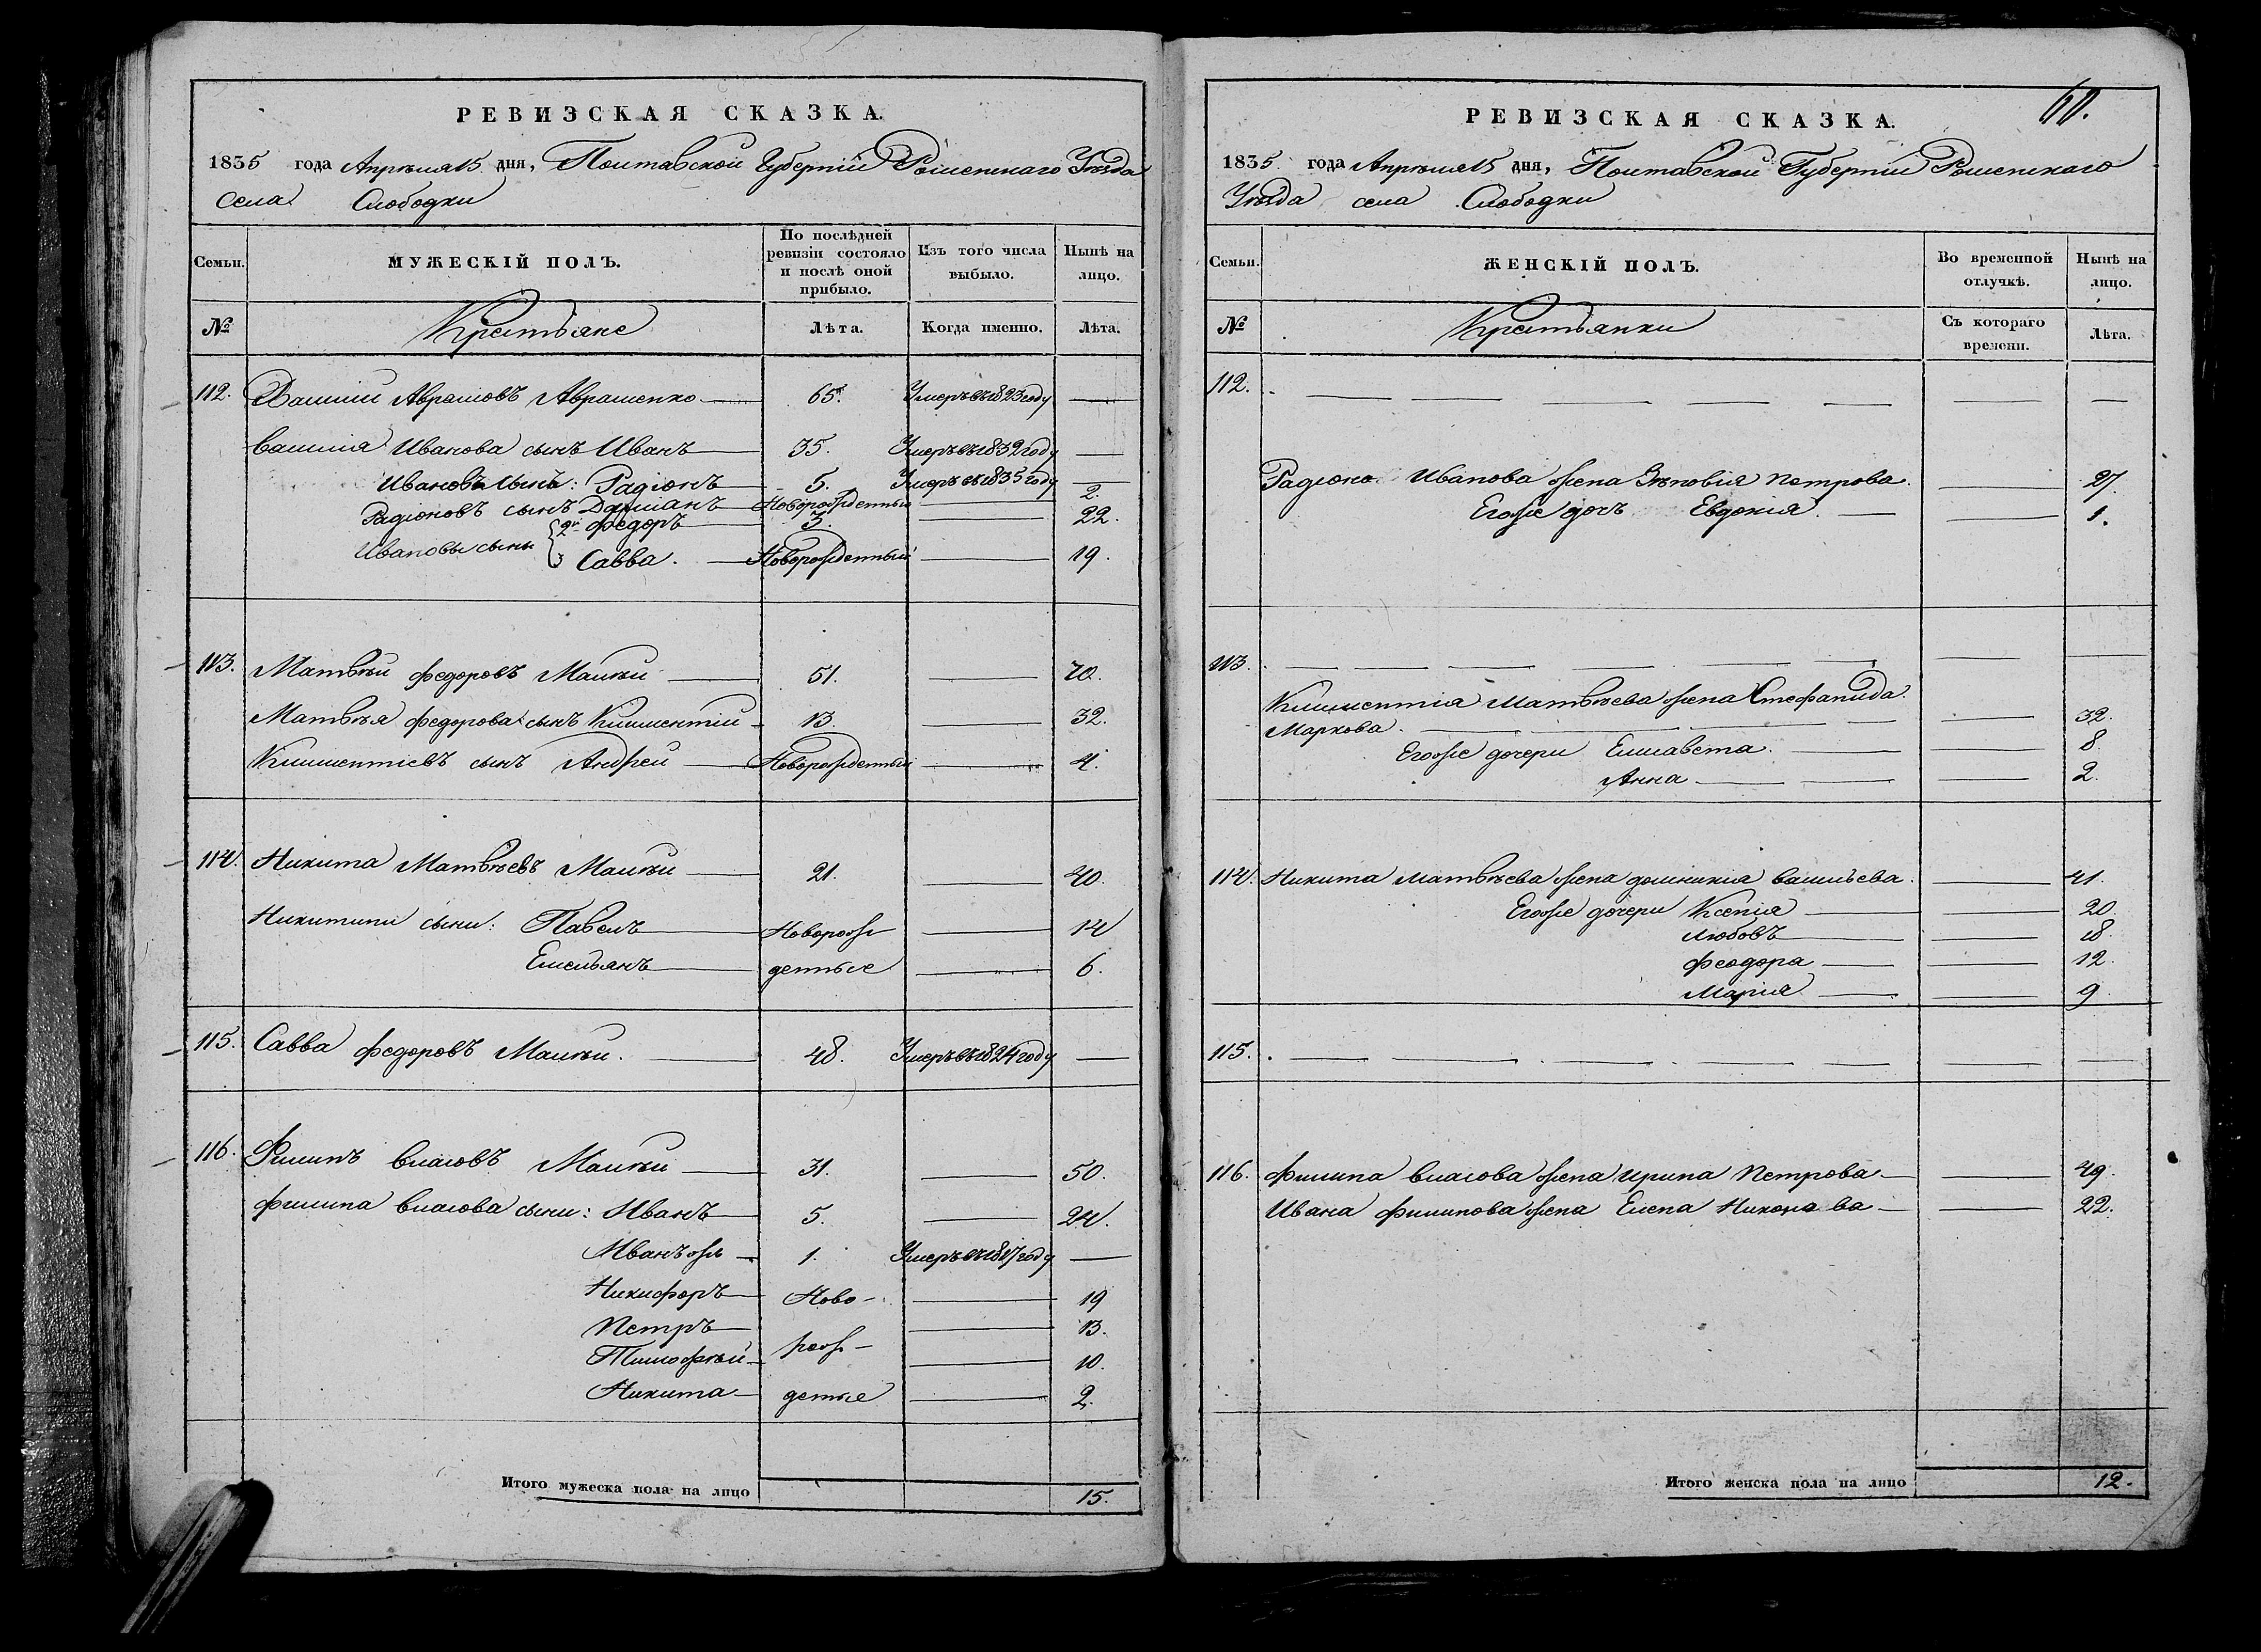 РЕВИЗСКАЯ СКАЗКА.
1835 года Апрѣля 15 дня, Полтавской Губерніи Роменскаго Уѣзда
Села Слободки
Семьи. МУЖЕСКІЙ ПОЛЪ. По послѣдней ревизіи состояло и послѣ оной прибыло. Изъ того числа выбыло. Нынѣ на лицо.
№ Крестьяне Лѣта. Когда именно. Лѣта.
112. Аврамовъ Авраменко 65. Умеръ въ 1823 году
Иванова сынъ Иванъ 35. Умеръ въ 1832 году
Ивановъ сынъ: Радіонъ 5. Умеръ въ 1835 году
Радіоновъ сынъ Даміанъ Новорожденный 2.
2й Федоръ 3. 22.
Ивановы сыны
Савва. Новорожденный 19.
113. Матвѣй Федоровъ Малѣй 51. 70.
Матвѣя Федорова сынъ Климентій 13. 32.
Климентіевъ сынъ Андрей Новорожденный 4.
114. Никита Матвѣевъ Малѣй 21. 40.
Никитини сыни: Павелъ Новорож 14
Емельянъ денные 6.
115. Савва Федоровъ Малѣй. 48. Умеръ въ 1824 году
116. Филипъ Власовъ Малѣй 31. 50.
Филипа Власова сыни: Иванъ 5. 24.
Иванъ же 1. Умеръ въ 1817 году
Никифоръ Ново- 19
Петръ 13.
Тимофѣй рож- 10.
Никита денные 2.
Итого мужеска пола на лицо 15.
60.
РЕВИЗСКАЯ СКАЗКА.
1835 года Апрѣля 15 дня, Полтавской Губерніи Роменскаго
Уѣзда села Слободки
Семьи. ЖЕНСКІЙ ПОЛЪ. Во временной отлучкѣ. Нынѣ на лицо.
№ Крестьянки Съ котораго времени. Лѣта.
112.
Радіона Иванова жена Зѣновія Петрова. 27.
Егоже дочь Евдокія. 1.
113.
Климентія Матвѣева жена Стефанида
Маркова. 32.
Егоже дочери Елисавета. 8.
Анна 2.
114. Никита Матвѣева жена Домникія Васильева. 41.
Егоже дочери Ксенія 20.
Любовъ 18.
Феодора 12.
Марія 9.
115.
116. Филипа Власова жена Ирина Петрова 49.
Ивана Филипова жена Елена Никонова 22.
Итого женска пола на лицо 12.